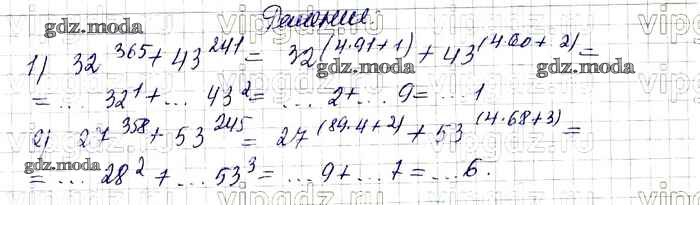 Решение:
1) 32^365 + 43^241 = 32^(4·91+1) + 43^(4·60+2) =
= ... 32^1 + ... 43^2 = ... 2 + ... 9 = ... 1
2) 27^358 + 53^245 = 27^(89·4+2) + 53^(4·68+3) =
= ... 28^2 + ... 53^3 = ... 9 + ... 7 = ... 6.
gdz.moda
gdz.moda
gdz.moda
gdz.moda
vipgdz.com